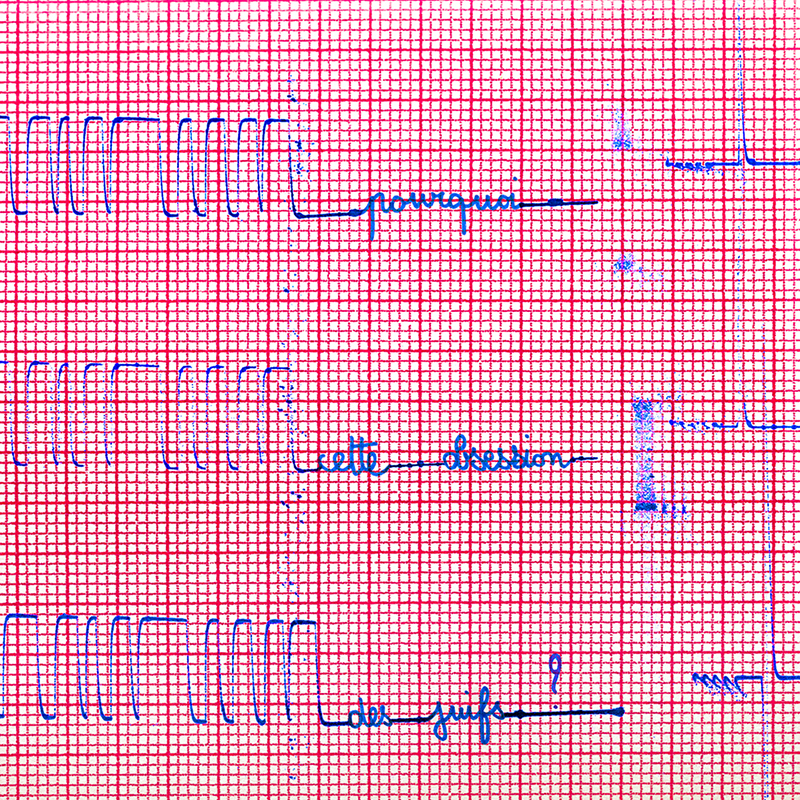 pourquoi
cette obsession
des juifs ?